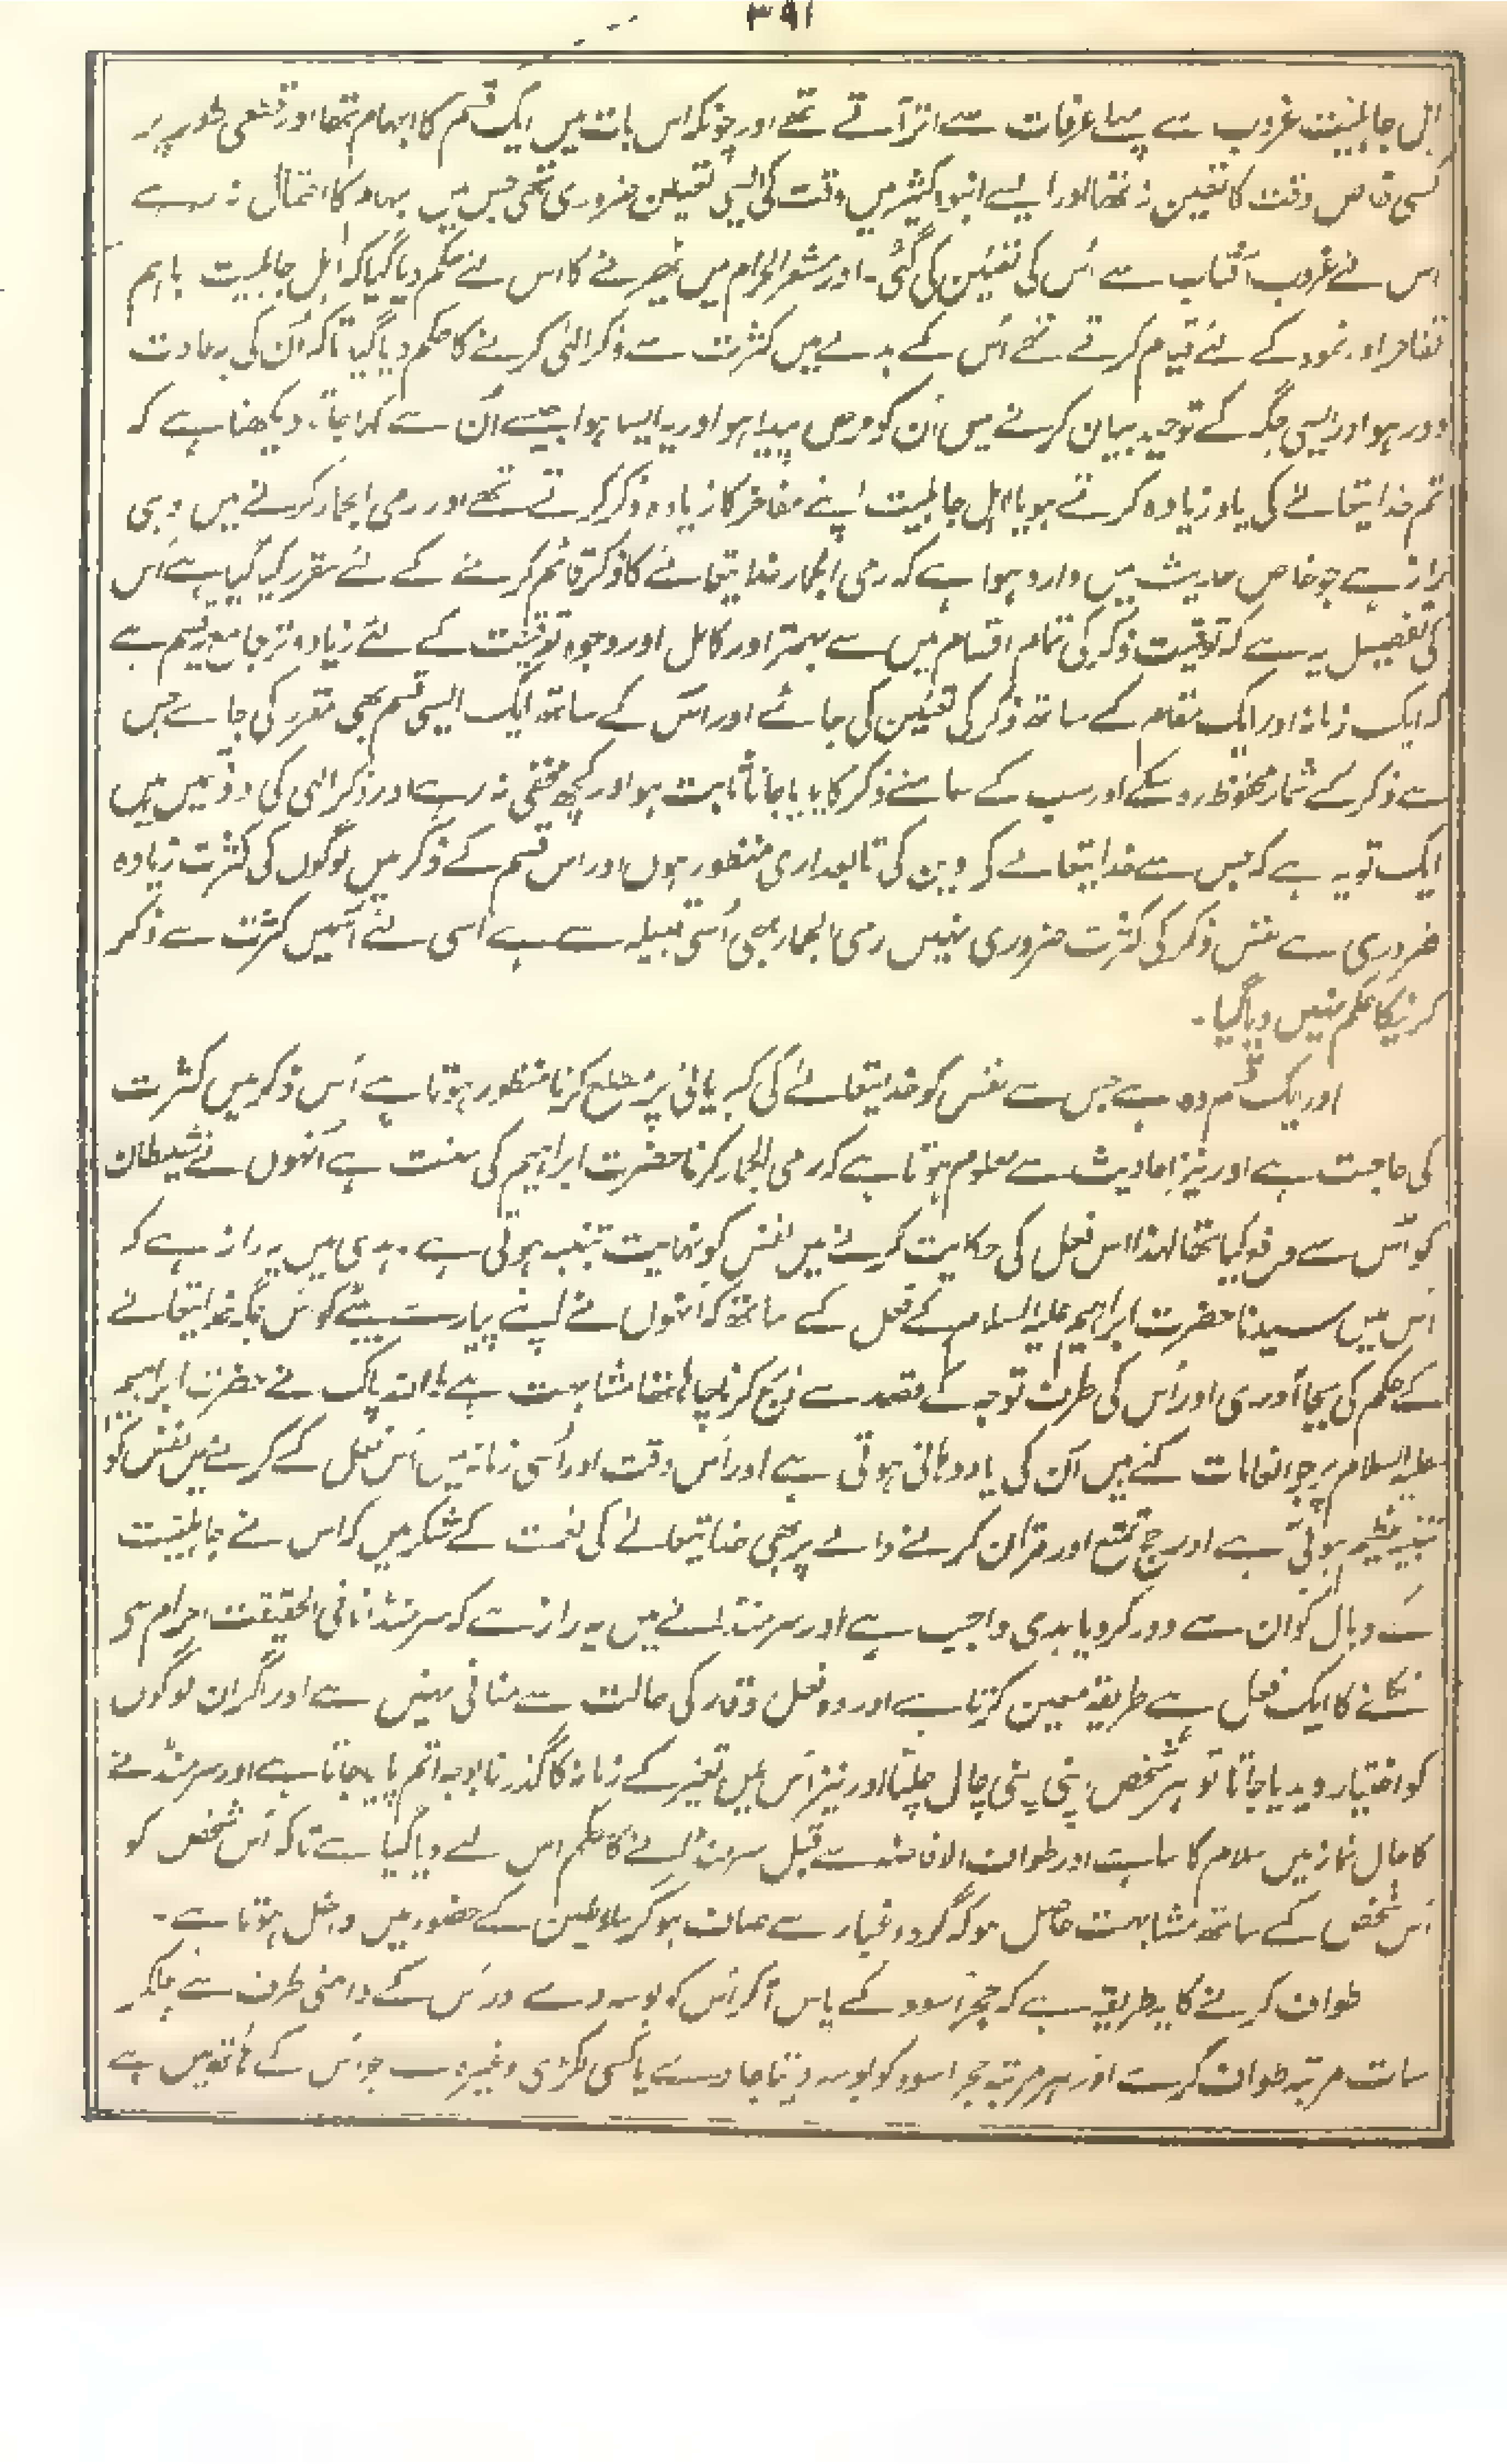 ۳۹۱
اہل جاہلیت غروب سے پہلے عرفات سے اتر آتے تھے اور چونکہ اس بات میں ایک قسم کا ابہام تھا اور قطعی طور پر
کسی خاص وقت کا تعین نہ تھا اور ایسے انبوہ کثیر میں وقت کی ایسی تعیین ضروری تھی جس میں ابہام کا احتمال نہ رہے
اس لئے غروب آفتاب سے اُس کی تعیین کی گئی۔ اور مشعر الحرام میں ٹھیرنے کا اس لئے حکم دیا گیا کہ اہل جاہلیت باہم
تفاخر اور نمود کے لئے قیام کرتے تھے اُس کے بدلے میں کثرت سے ذکر الٰہی کرنے کا حکم دیا گیا تاکہ اُن کی یہ عادت
دور ہو اور ایسی جگہ کے توحید بیان کرنے میں اُن کو حرص پیدا ہو اور یہ ایسا ہوا جیسے اُن سے کہا جاتا۔ دیکھنا ہے کہ
تم خدا یتعالےٰ کی یاد زیادہ کرتے ہو یا اہل جاہلیت اپنے مفاخر کا زیادہ ذکر کرتے تھے اور رمی الجمار کرنے میں وہی
راز ہے جو خاص حدیث میں وارد ہوا ہے کہ رمی الجمار خدا یتعالےٰ کا ذکر قائم کرنے کے لئے مقرر کیا گیا ہے اُس
کی تفصیل یہ ہے کہ توقیت ذکر کی تمام اقسام میں سے بہتر اور کامل اور وجوہ توقیت کے لئے زیادہ تر جامع قسم ہے
کہ ایک زمانہ اور ایک مقام کے ساتھ ذکر کی تعیین کی جائے اور اس کے ساتھ ایک ایسی قسم بھی مقرر کی جائے جس
سے ذکر کے شمار محفوظ رہ سکے اور سب کے سامنے ذکر کا پایا جانا ثابت ہو اور کچھ مخفی نہ رہے اور ذکر الٰہی کی دو قسمیں ہیں
ایک تو یہ ہے کہ جس سے خدا یتعالےٰ کے دین کی تابعداری منظور ہوں اور اس قسم کے ذکر میں لوگوں کی کثرت زیادہ
ضروری ہے نفس ذکر کی کثرت ضروری نہیں رمی الجمار بھی اُسی قبیلہ سے ہے اسی لئے اُسمیں کثرت سے ذکر
کرنیکا حکم نہیں دیا گیا۔
اور ایک قسم وہ ہے جس سے نفس کو خدا یتعالےٰ کی کبریائی پر مطلع کرنا منظور ہوتا ہے اُس ذکر میں کثرت
کی حاجت ہے اور نیز احادیث سے معلوم ہوتا ہے کہ رمی الجمار کرنا حضرت ابراہیم کی سنت ہے اُنہوں نے شیطان
کو اُس سے دفع کیا تھا لہذا اس فعل کی حکایت کرنے میں نفس کو نہایت تنبیہ ہوتی ہے۔ ہدی میں یہ راز ہے کہ
اُس میں سیدنا حضرت ابراہیم علیہ السلام کے فعل کے ساتھ کہ اُنہوں نے اپنے پیارے بیٹے کو اس جگہ خدا یتعالےٰ
کے حکم کی بجا آوری اور اُس کی طرف توجہ کے قصد سے ذبح کرنا چاہا تھا مشابہت ہے اللہ پاک نے حضرت ابراہیم
علیہ السلام پر جو انعامات کئے ہیں اُن کی یاد دہانی ہوتی ہے اور اُس وقت اور اُسی زمانہ میں اُس فعل کے کرنے میں نفس کو
تنبیہ عظیم ہوتی ہے اور حج تمتع اور قران کرنے والے پر بھی خدا یتعالےٰ کی نعمت کے شکر میں کہ اس نے جاہلیت
کے وبال کو ان سے دور کردیا ہدی واجب ہے اور سر منڈانے میں یہ راز ہے کہ سر منڈانا فی الحقیقت احرام سے
نکلنے کا ایک فعل ہے طریقہ معین کرتا ہے اور وہ فعل وقار کی حالت سے منافی نہیں ہے اور اگر ان لوگوں
کو اختیار دیدیا جاتا تو ہر شخص اپنی اپنی چال چلتا اور نیز اُس میں تغیر کے زمانہ کا گذرنا بوجہ اتم پایا جاتا ہے اور سر منڈانے
کا حال نماز میں سلام کا سا ہے اور طواف الافاضہ سے قبل سر منڈانے کا حکم اس لئے دیا گیا ہے تاکہ اُس شخص کو
اُس شخص کے ساتھ مشابہت حاصل ہو کہ گرد و غبار سے صاف ہو کر سلاطین کے حضور میں داخل ہوتا ہے۔
طواف کرنے کا یہ طریقہ ہے کہ حجر اسود کے پاس آکر اُس کو بوسہ دے اور اُس کے داہنی طرف سے چلکر
سات مرتبہ طواف کرے اور ہر مرتبہ حجر اسود کو بوسہ دیتا جاوے یا کسی لکڑی وغیرہ سے جو اُس کے ہاتھ میں ہے